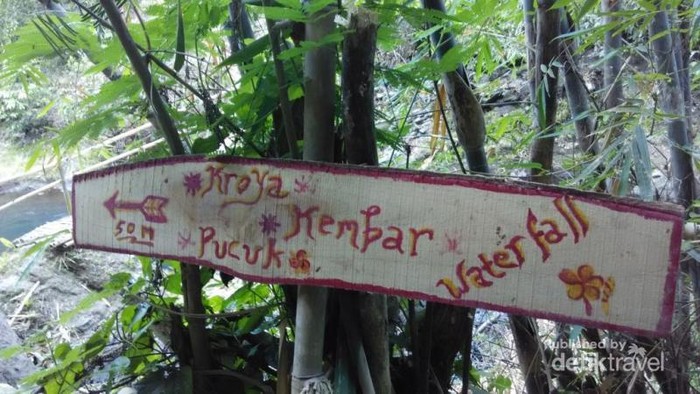 50 M
Kroya
Kembar
Pucuk
Waterfall
Published by
detiktravel